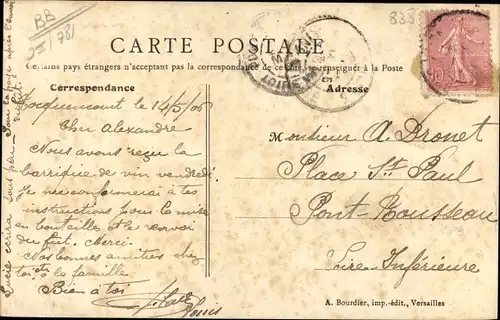 BB
838
CARTE POSTALE
Certains pays étrangers n'acceptant pas la correspondance de ce côté, se renseigner à la Poste
Correspondance
Adresse
Rocquencourt le 14/5/06
Cher Alexandre
Nous avons reçu la
barrique de vin vendredi
Je me conformerai à tes
instructions pour la mise
en bouteilles et le renvoi
du fût. Merci.
Nos bonnes amitiés chez
toi et à la famille
Bien à toi
Louis
Lucie écrira sous peu
Monsieur A. Dronet
Place St Paul
Pont-Rousseau
Loire Inférieure
10
A. Bourdier, imp.-édit., Versailles